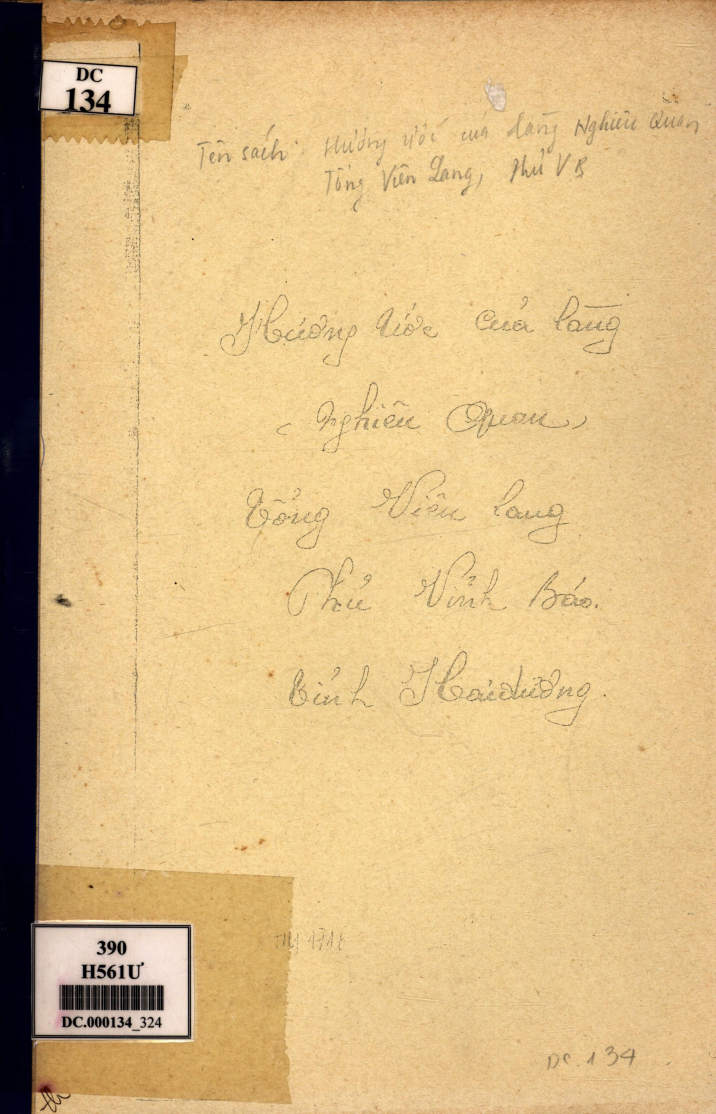 DC
134
Tên sách: Hương ước của làng Nghiên Quan
Tổng Viên Lang, Phủ VB
Hương ước của làng
(Nghiên Quan)
Tổng Viên Lang
Phủ Vĩnh Bảo.
Tỉnh Hảidương.
390
H561Ư
DC.000134_324
DC. 134